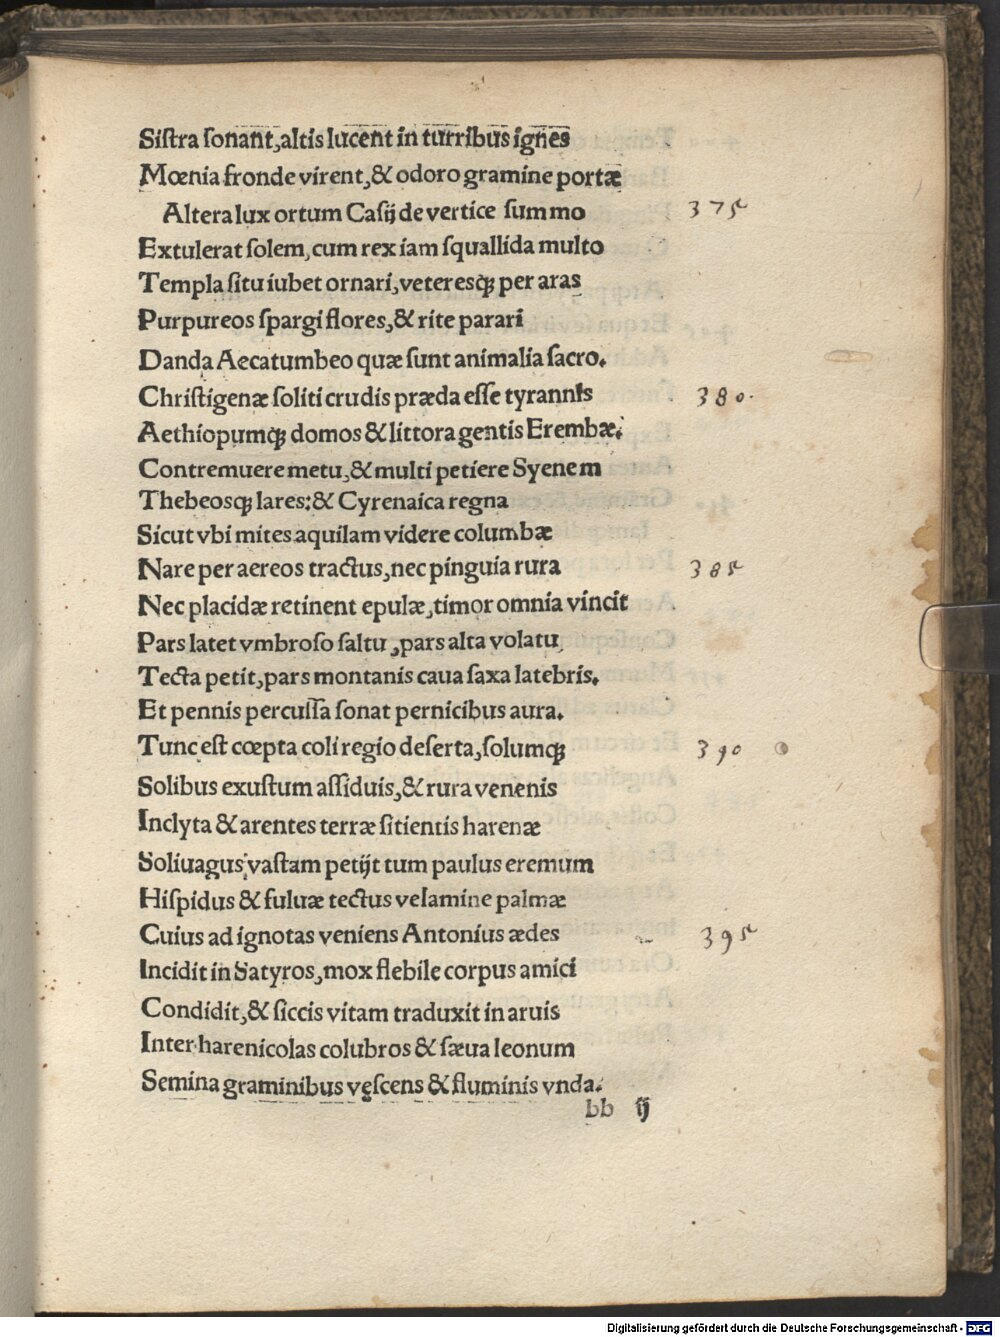 Siſtra ſonant,altis lucent in turribus ignes
Mœnia fronde virent,& odoro gramine portæ
Altera lux ortum Caſij de vertice ſummo 375
Extulerat ſolem, cum rex iam ſquallida multo
Templa ſitu iubet ornari, veteresqꝫ per aras
Purpureos ſpargi flores,& rite parari
Danda Aecatumbeo quæ ſunt animalia ſacro.
Chriſtigenæ ſoliti crudis præda eſſe tyrannis 380.
Aethiopumqꝫ domos & littora gentis Erembæ.
Contremuere metu,& multi petiere Syenem
Thebeosqꝫ lares:& Cyrenaica regna
Sicut vbi mites aquilam videre columbæ
Nare per aereos tractus,nec pinguia rura 385
Nec placidæ retinent epulæ,timor omnia vincit
Pars latet vmbroſo ſaltu,pars alta volatu
Tecta petit,pars montanis caua ſaxa latebris.
Et pennis percuſſa ſonat pernicibus aura.
Tunc eſt cœpta coli regio deſerta,ſolumqꝫ 390
Solibus exuſtum aſſiduis,& rura venenis
Inclyta & arentes terræ ſitientis harenæ
Soliuagus vaſtam petijt tum paulus eremum
Hiſpidus & fuluæ tectus velamine palmæ
Cuius ad ignotas veniens Antonius ædes 395
Incidit in Satyros,mox flebile corpus amici
Condidit,& ſiccis vitam traduxit in aruis
Inter harenicolas colubros & ſæua leonum
Semina graminibus veſcens & fluminis vnda.
bb ij
Digitalisierung gefördert durch die Deutsche Forschungsgemeinschaft - DFG